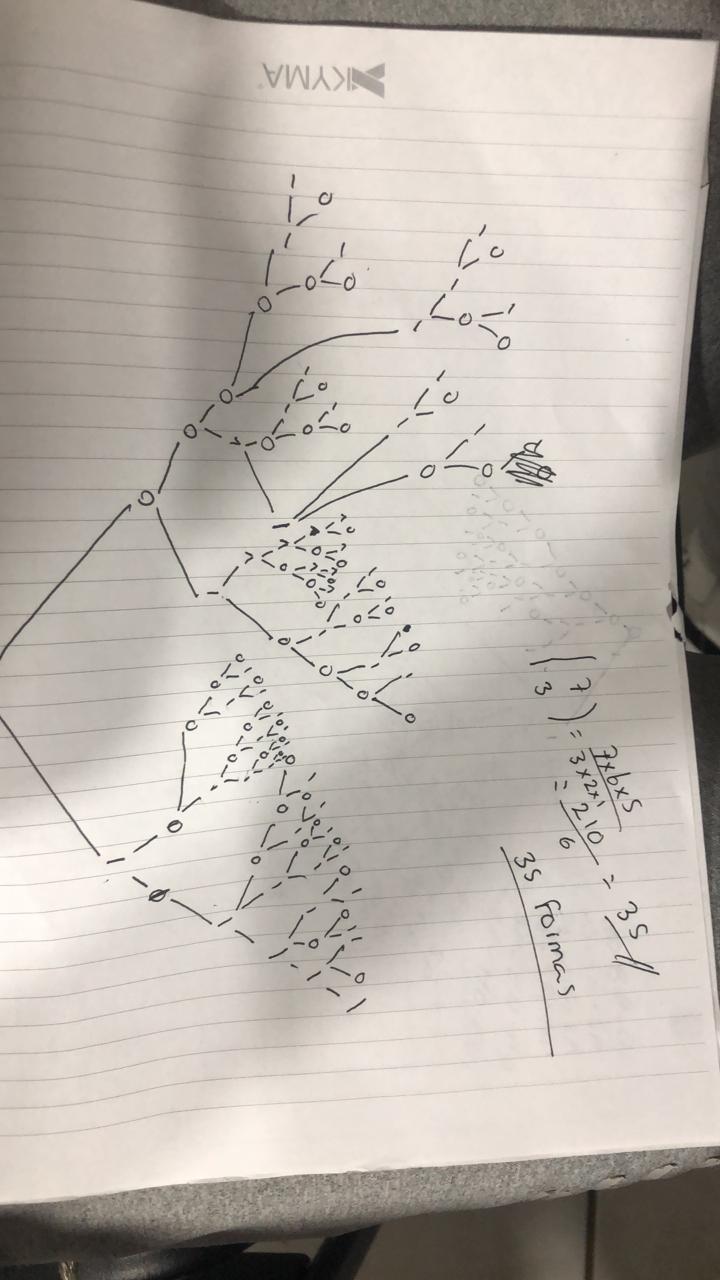 KYMA
(7 3) = 7x6x5 / 3x2x1 = 210 / 6 = 35
35 Formas